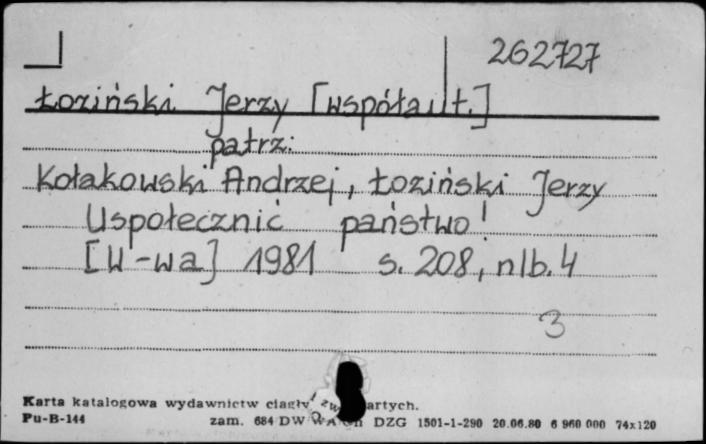 262727
Łoziński Jerzy [współaut.]
patrz:
Kołakowski Andrzej, Łoziński Jerzy
Uspołecznić państwo!
[W-wa] 1981 s. 208, nlb. 4
3
Karta katalogowa wydawnictw
Pu-B-144 zam. 684 DW DZG 1501-1-290 20.06.80 6 960 000 74x120